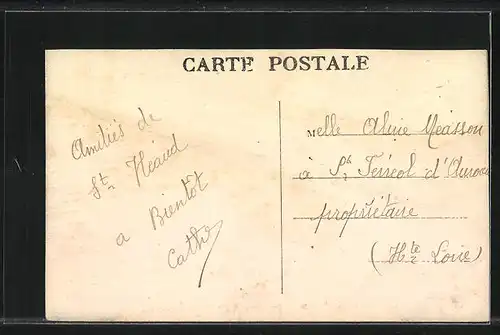 CARTE POSTALE
Amitiés de
St. Héand
a Bientôt
Melle Aline
à St Ferréol d'Auroure
propriétaire
(Hte Loire)